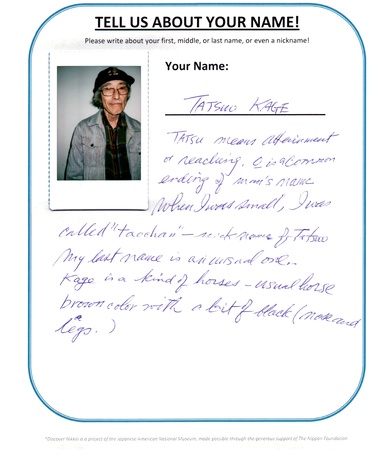 TELL US ABOUT YOUR NAME!
Please write about your first, middle, or last name, or even a nickname!
Your Name:
TATSUO KAGE
TATSU means attainment
or reaching. O is a common
ending of man's name
When I was small, I was
called "tacchan" – nick name of Tatsuo
My last name is an unusual one.
Kage is a kind of horses – usual horse
brown color with a bit of black (nose and
legs.)
*Discover Nikkei is a project of the Japanese American National Museum, made possible through the generous support of The Nippon Foundation